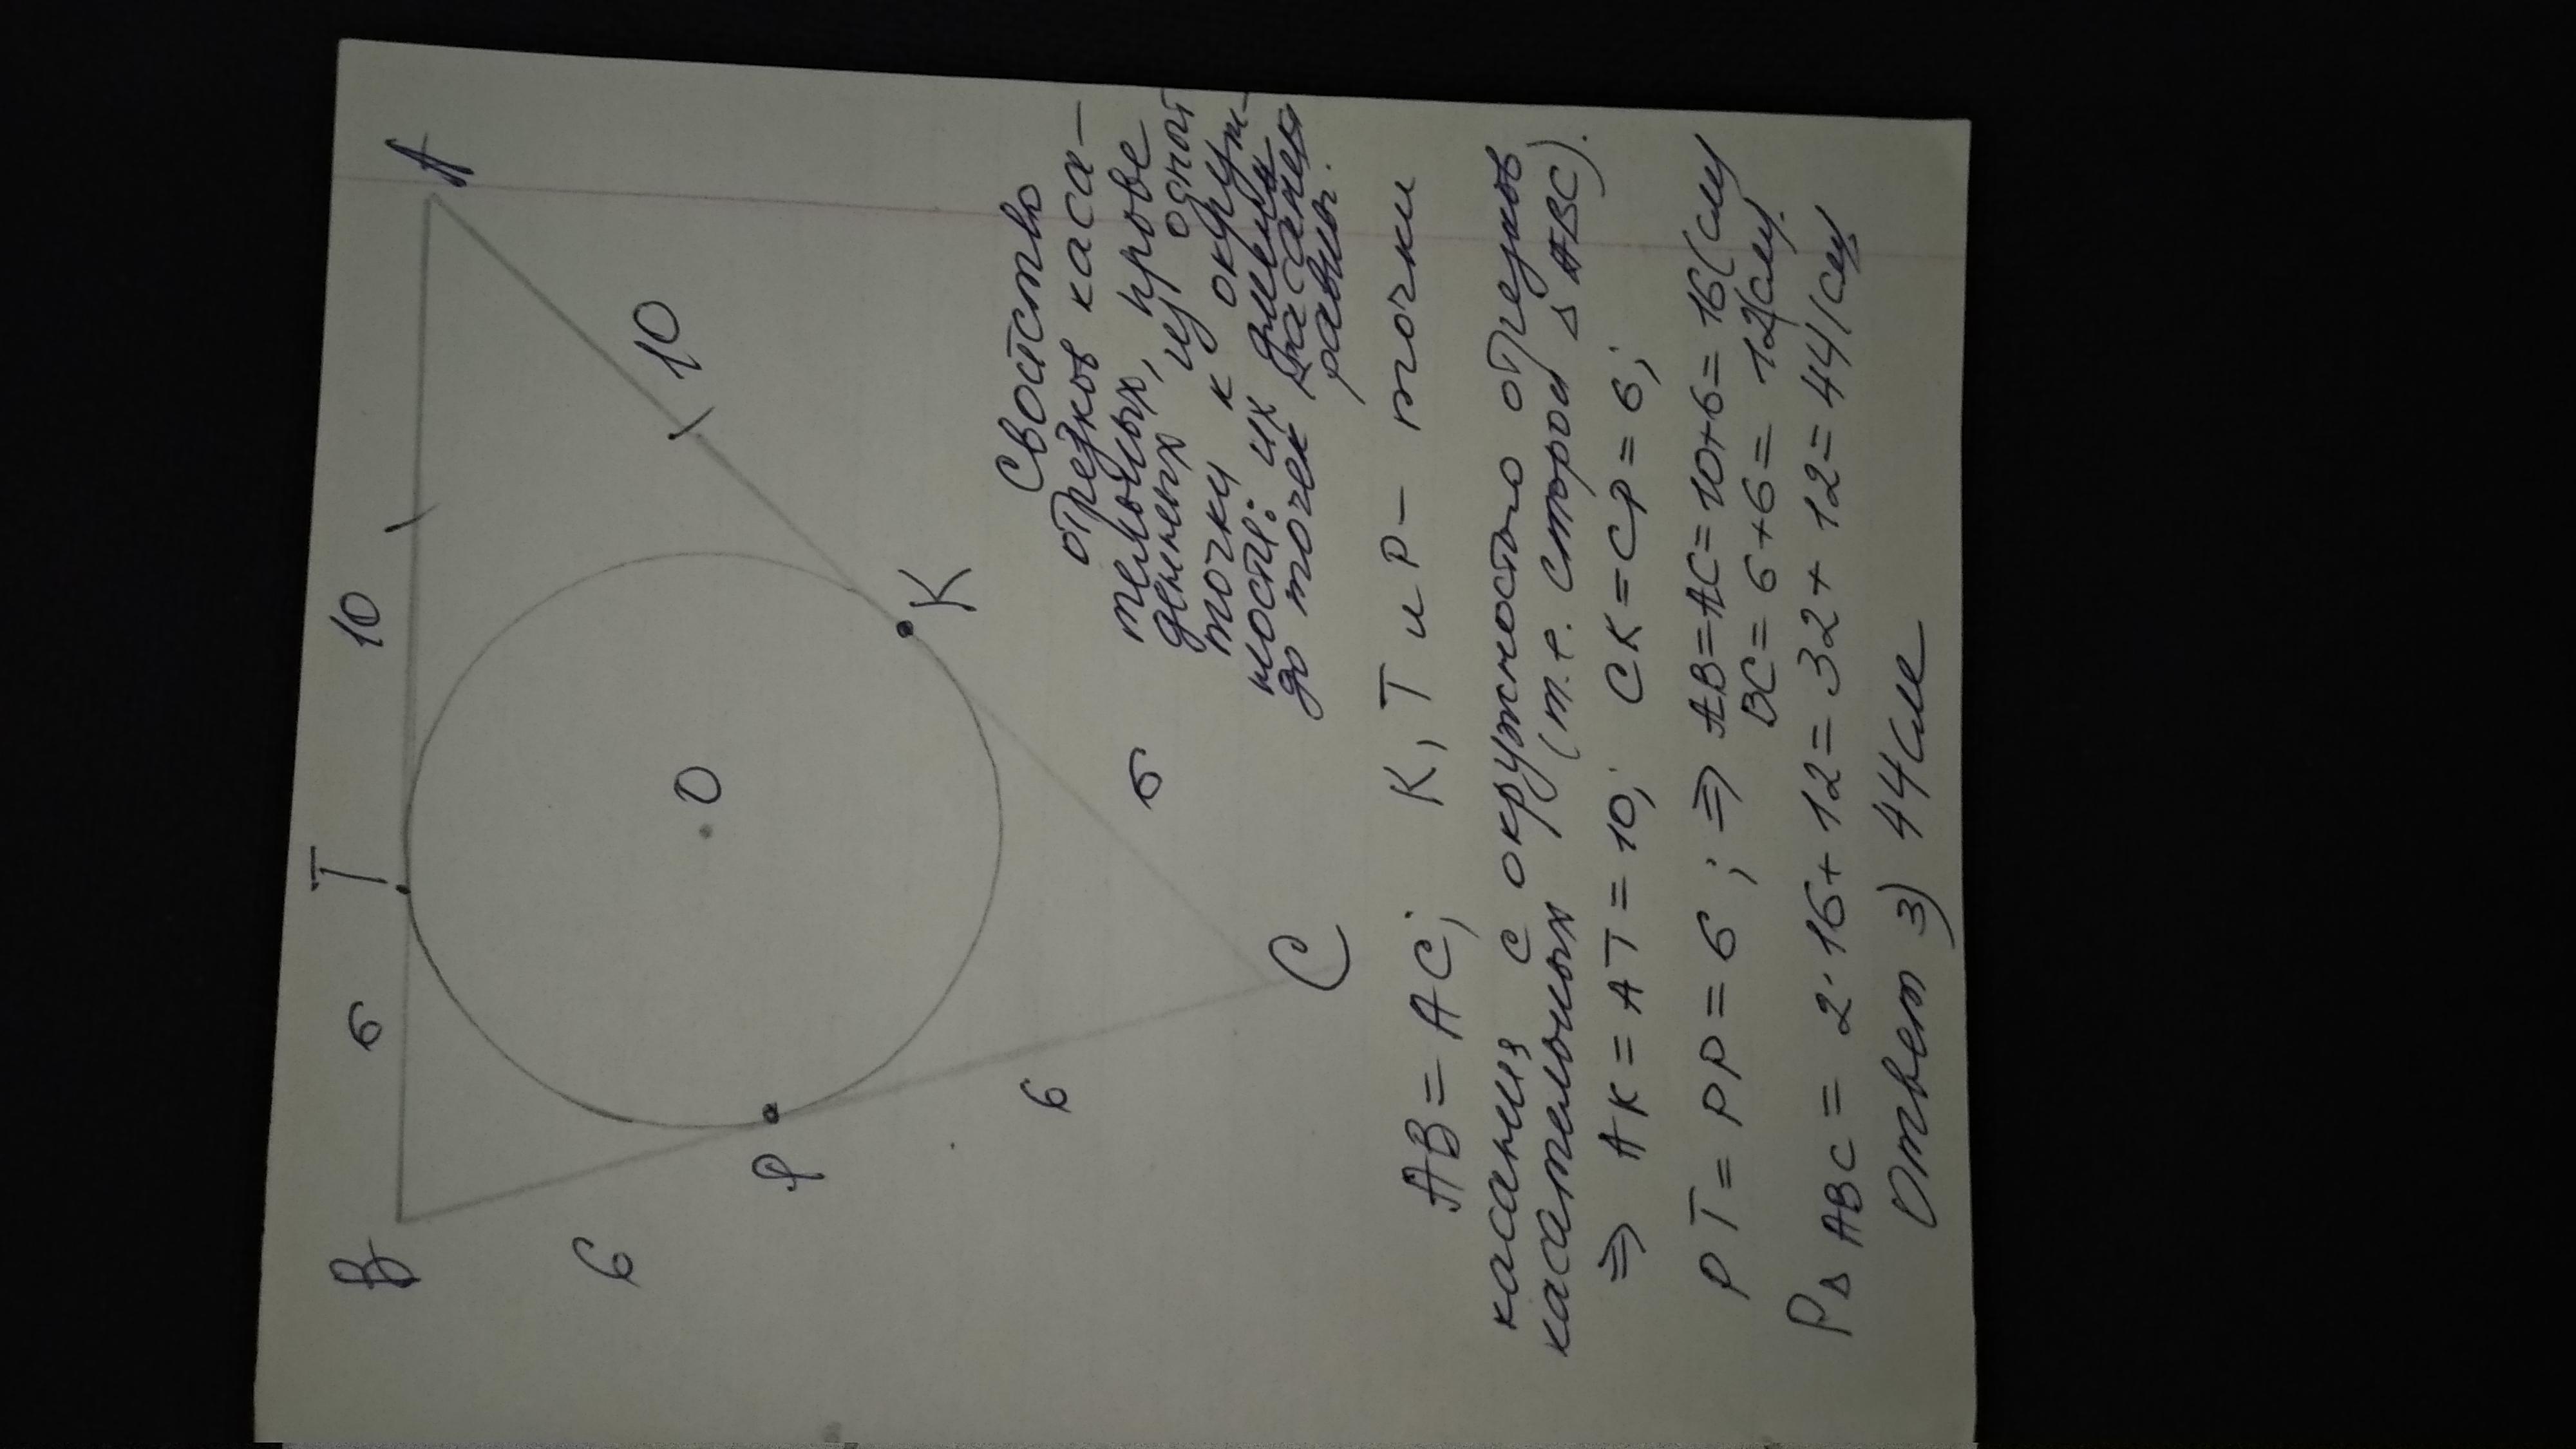 A
10
10
T
K
O
б
б
B
б
P
б
C
Свойство
отрезков каса-
тельных, прове
денных из одной
точки к окруж-
ности: их длины
до точек касания
равны.
AB = AC; K, T и P - точки
касания с окружностью отрезков
касательных (т.е. сторон △ ABC).
⇒ AK = AT = 10; CK = CP = 6;
PT = PP = 6; ⇒ AB = AC = 10+6 = 16(см)
BC = 6+6 = 12(см).
P△ABC = 2·16+12 = 32+12 = 44(см)
Ответ 3) 44см